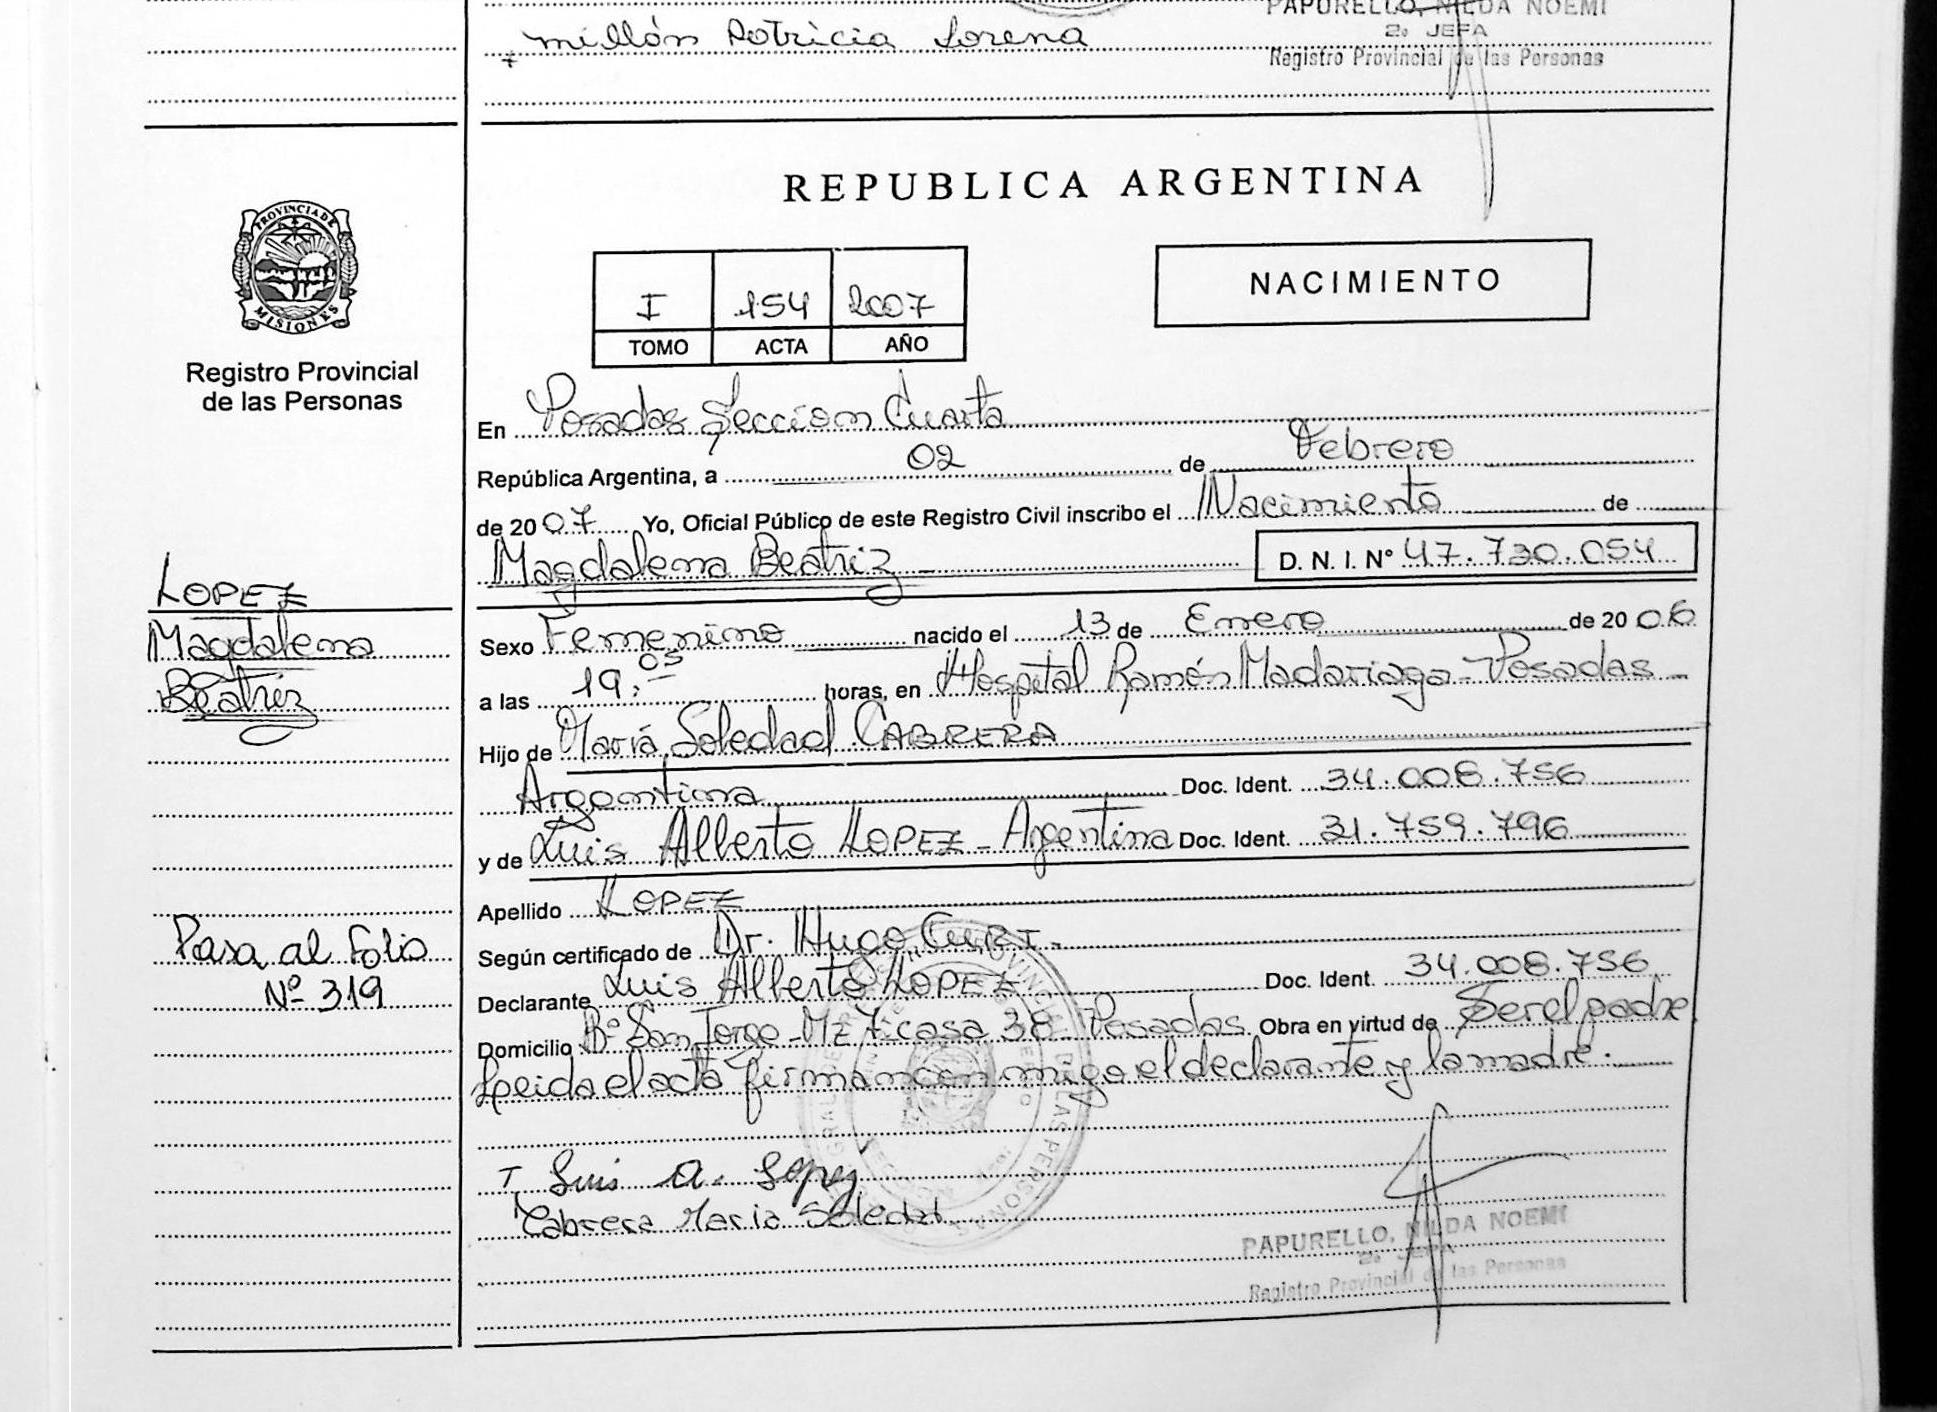 millón Patricia Lorena
PAPURELLO, NILDA NOEMI
2º JEFA
Registro Provincial de las Personas
REPUBLICA ARGENTINA
PROVINCIA DE
MISIONES
Registro Provincial
de las Personas
I 154 2007
TOMO ACTA AÑO
NACIMIENTO
En Posadas Sección Cuarta
República Argentina, a 02 de Febrero
de 2007 Yo, Oficial Público de este Registro Civil inscribo el Nacimiento de
Magdalena Beatriz D. N. I. Nº 47.730.054
LOPEZ
Magdalena
Beatriz
Sexo Femenino nacido el 13 de Enero de 2006
a las 19:05 horas, en Hospital Ramón Madariaga - Posadas -
Hijo de María Soledad CABRERA
Argentina Doc. Ident. 34.008.756
y de Luis Alberto LOPEZ - Argentina Doc. Ident. 31.759.796
Apellido LOPEZ
Según certificado de Dr. Hugo CURI.-
Declarante Luis Alberto LOPEZ Doc. Ident. 34.008.756
Domicilio Bº San Jorge - Mz 7 casa 38 - Posadas Obra en virtud de Ser el padre
Leida el acta firman conmigo el declarante y la madre.
Pasa al folio
Nº 319
Luis A. Lopez
Cabrera Maria Soledad
PAPURELLO, NILDA NOEMI
2º JEFA
Registro Provincial de las Personas